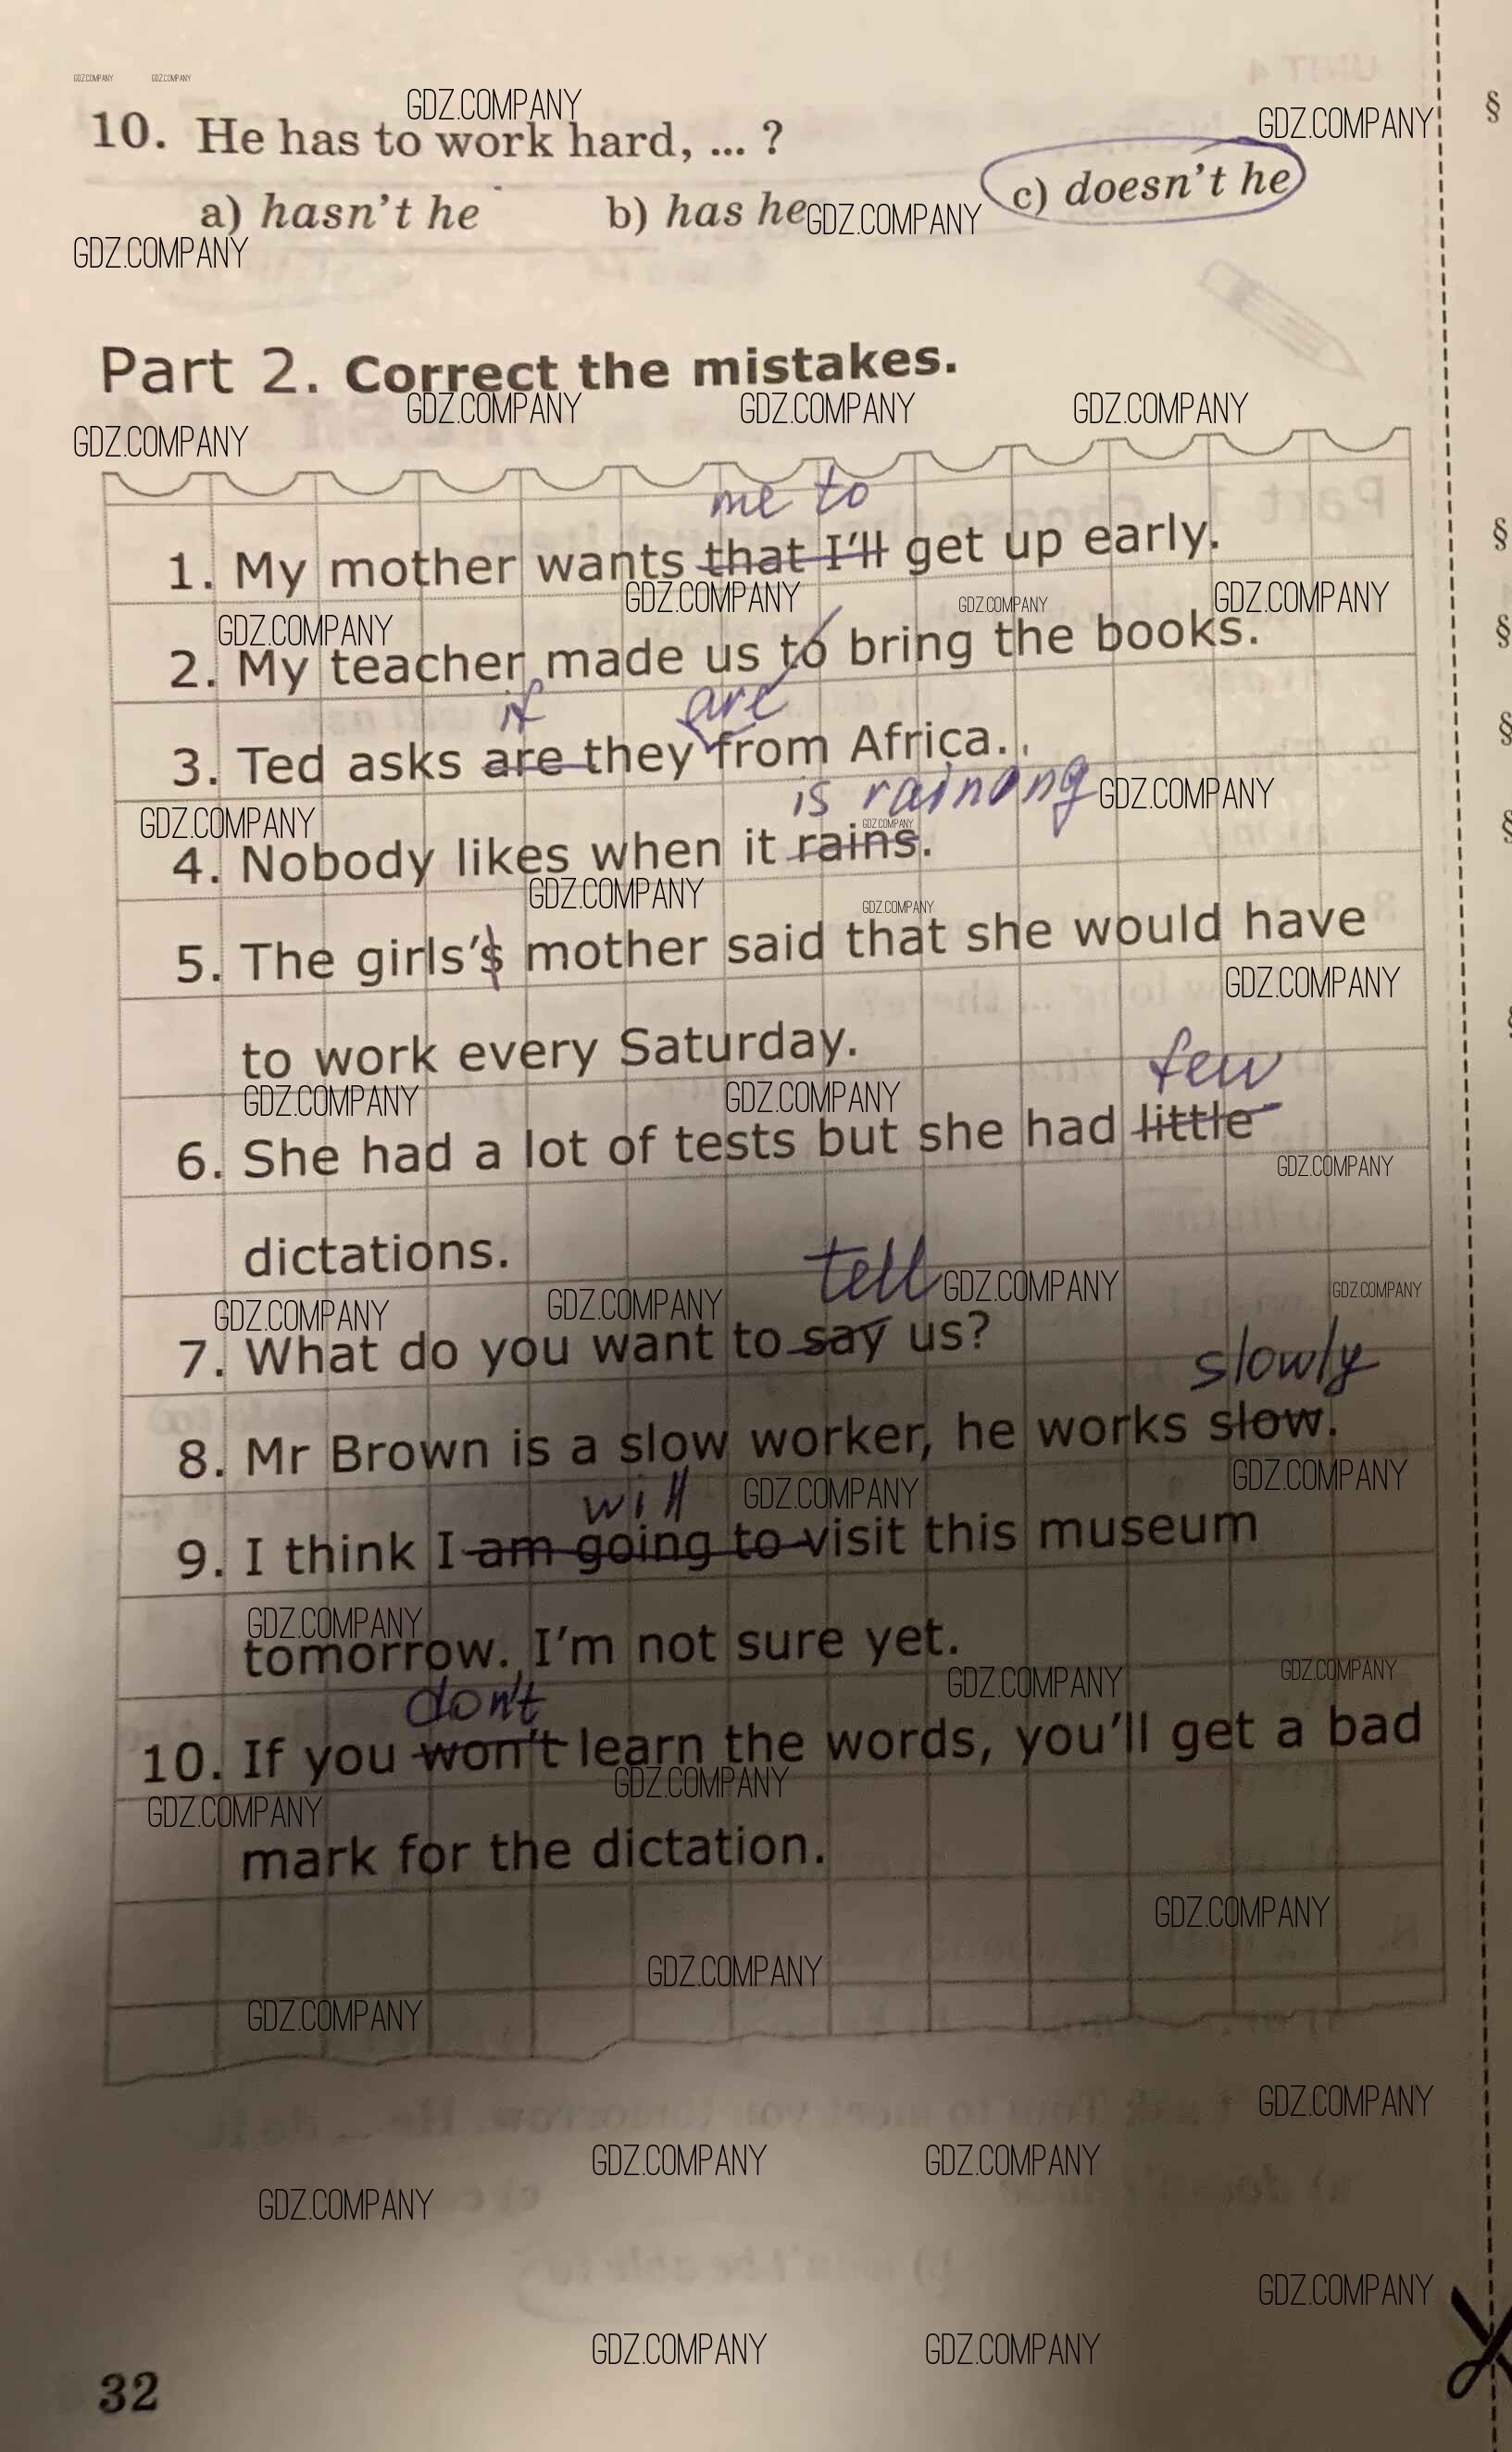 GDZ.COMPANY GDZ.COMPANY
GDZ.COMPANY GDZ.COMPANY
10. He has to work hard, ... ?
a) hasn't he b) has he GDZ.COMPANY c) doesn't he
GDZ.COMPANY
Part 2. Correct the mistakes.
GDZ.COMPANY GDZ.COMPANY GDZ.COMPANY
GDZ.COMPANY
me to
1. My mother wants that I'll get up early.
GDZ.COMPANY GDZ.COMPANY GDZ.COMPANY
GDZ.COMPANY
2. My teacher made us to bring the books.
if are
3. Ted asks are they from Africa.
is raining GDZ.COMPANY
GDZ.COMPANY GDZ.COMPANY
4. Nobody likes when it rains.
GDZ.COMPANY GDZ.COMPANY
5. The girls's mother said that she would have
GDZ.COMPANY
to work every Saturday.
few
GDZ.COMPANY GDZ.COMPANY
6. She had a lot of tests but she had little
GDZ.COMPANY
dictations.
tell GDZ.COMPANY GDZ.COMPANY
GDZ.COMPANY GDZ.COMPANY
7. What do you want to say us?
slowly
8. Mr Brown is a slow worker, he works slow.
GDZ.COMPANY
will GDZ.COMPANY
9. I think I am going to visit this museum
GDZ.COMPANY
tomorrow. I'm not sure yet.
GDZ.COMPANY GDZ.COMPANY
don't
10. If you won't learn the words, you'll get a bad
GDZ.COMPANY
GDZ.COMPANY
mark for the dictation.
GDZ.COMPANY
GDZ.COMPANY
GDZ.COMPANY
GDZ.COMPANY
GDZ.COMPANY GDZ.COMPANY
GDZ.COMPANY
GDZ.COMPANY
GDZ.COMPANY GDZ.COMPANY
32